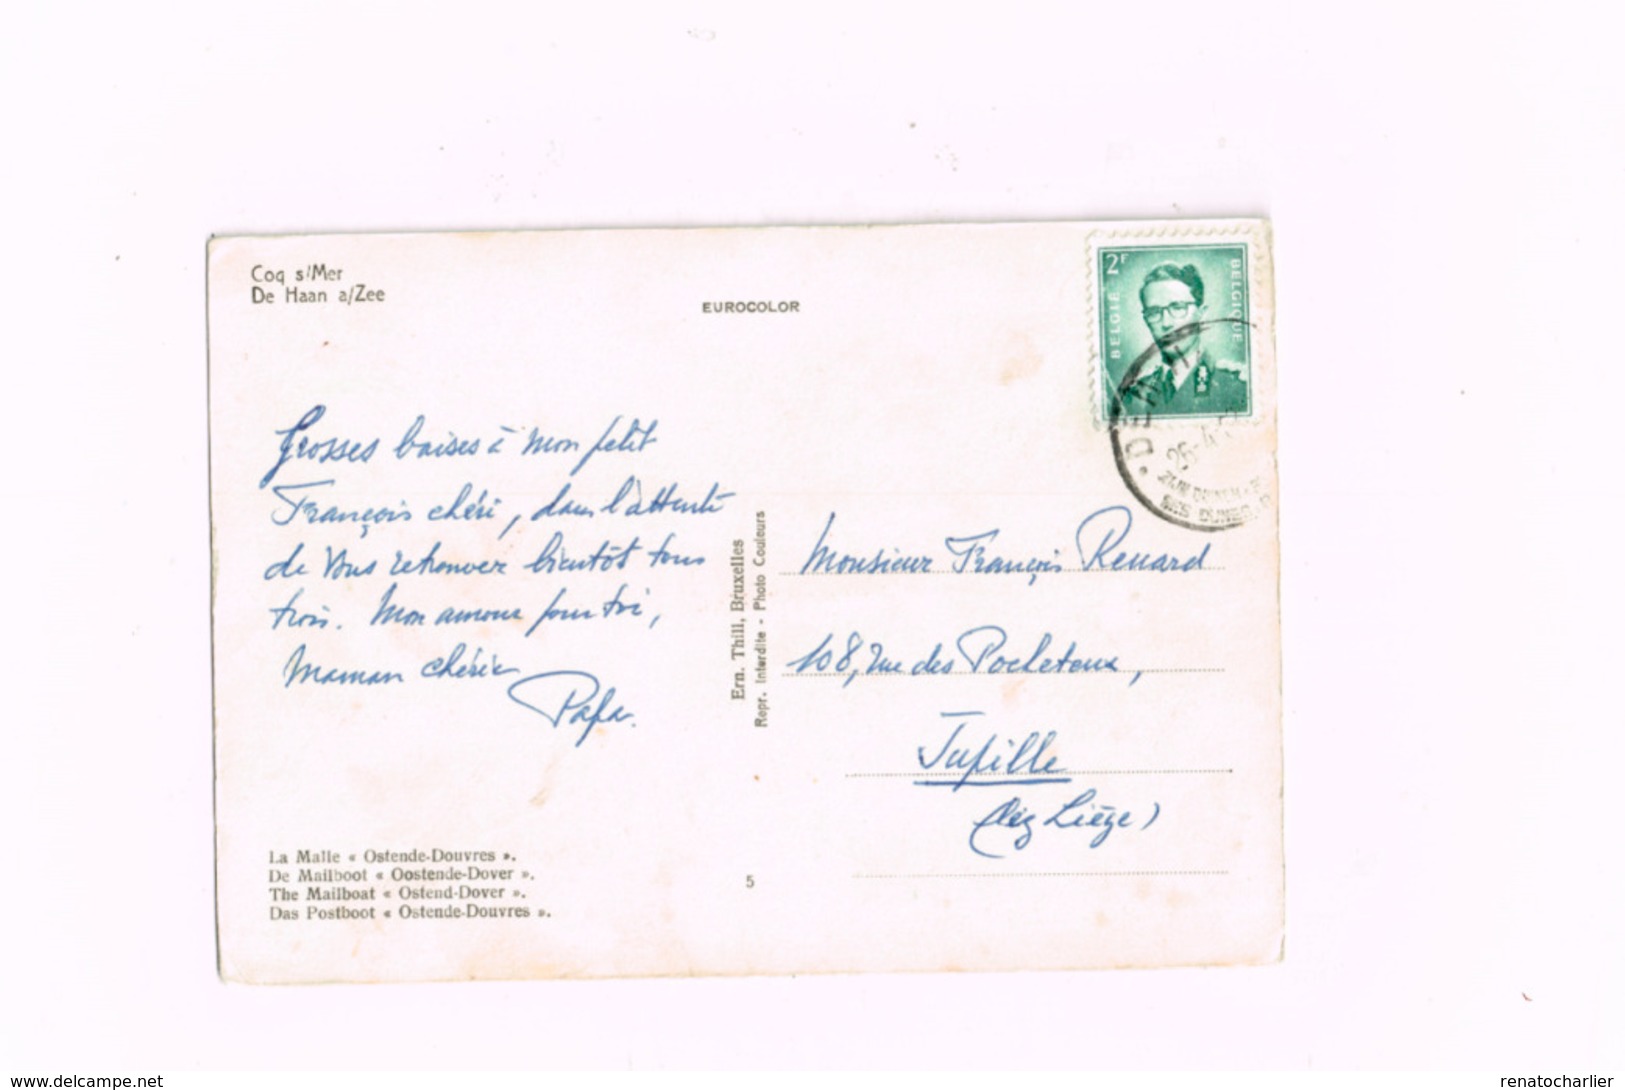 Coq s/Mer
De Haan a/Zee
EUROCOLOR
2F
BELGIË
BELGIQUE
DE HAAN
26-4
Grosses baises à mon petit
François chéri, dans l'attente
de vous retrouver bientôt tous
trois. Mon amour pour toi,
Maman chérie
Papa.
Ern. Thill, Bruxelles
Repr. Interdite - Photo Couleurs
Monsieur François Renard
108, rue des Pocheteux,
Jupille
(lez Liège)
La Malle « Ostende-Douvres ».
De Mailboot « Oostende-Dover ».
The Mailboat « Ostend-Dover ».
Das Postboot « Ostende-Douvres ».
5
http://www.delcampe.net
renatocharlier